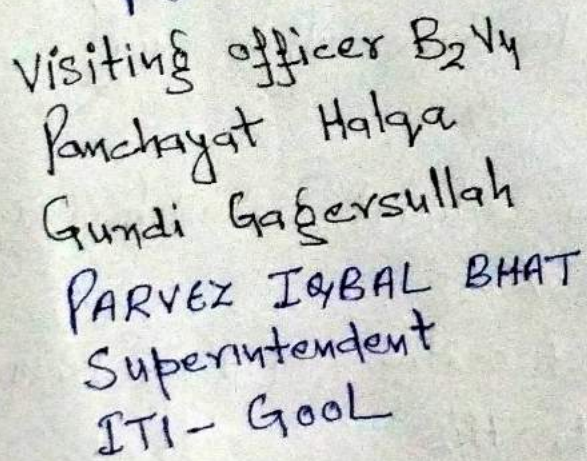 Visiting officer B2V4
Panchayat Halqa
Gundi Gagersullah
PARVEZ IQBAL BHAT
Superintendent
ITI - GOOL